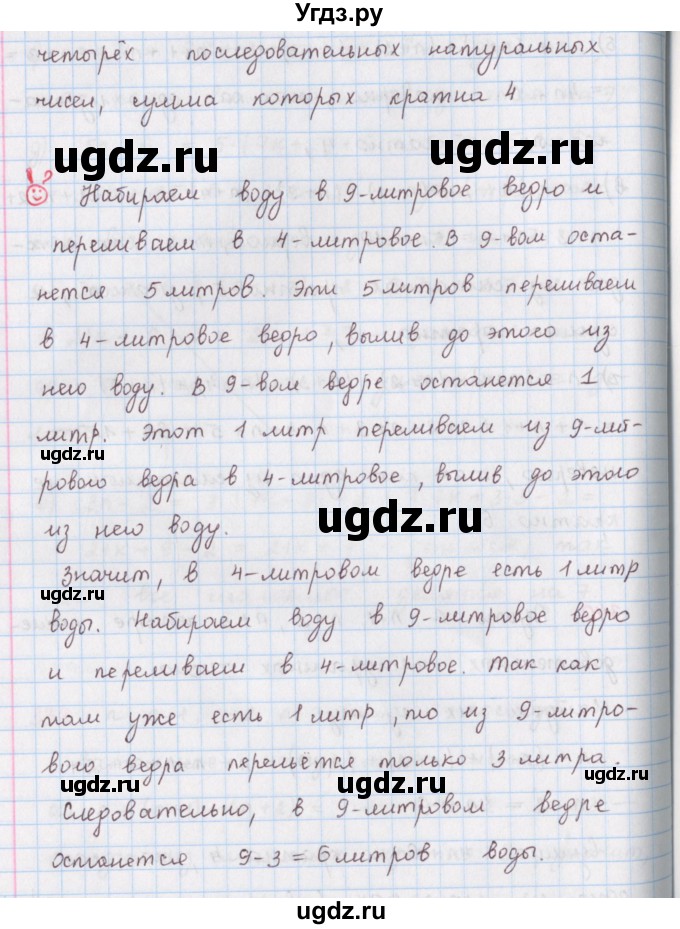 Угдз.ру
четырёх последовательных натуральных
чисел, сумма которых кратна 4
ugdz.ru ugdz.ru
!?
Набираем воду в 9-литровое ведро и
переливаем в 4-литровое. В 9-вом оста-
нется 5 литров. Эти 5 литров переливаем
в 4-литровое ведро, вылив до этого из
него воду. В 9-вом ведре останется 1
литр. Этот 1 литр переливаем из 9-лит-
ugdz.ru
рового ведра в 4-литровое, вылив до этого
из него воду.
ugdz.ru
Значит, в 4-литровом ведре есть 1 литр
ugdz.ru
воды. Набираем воду в 9-литровое ведро
и переливаем в 4-литровое. Так как
там уже есть 1 литр, то из 9-литро-
вого ведра перельётся только 3 литра.
ugdz.ru ugdz.ru ugdz.ru
Следовательно, в 9-литровом ведре
останется 9-3=6 литров воды.
ugdz.ru